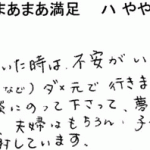 まあまあ満足　ハ やや
いた時は、不安がい
など) ダメ元で 行きま
にのって 下さって、夢
夫婦はもちろん、子
射しています。